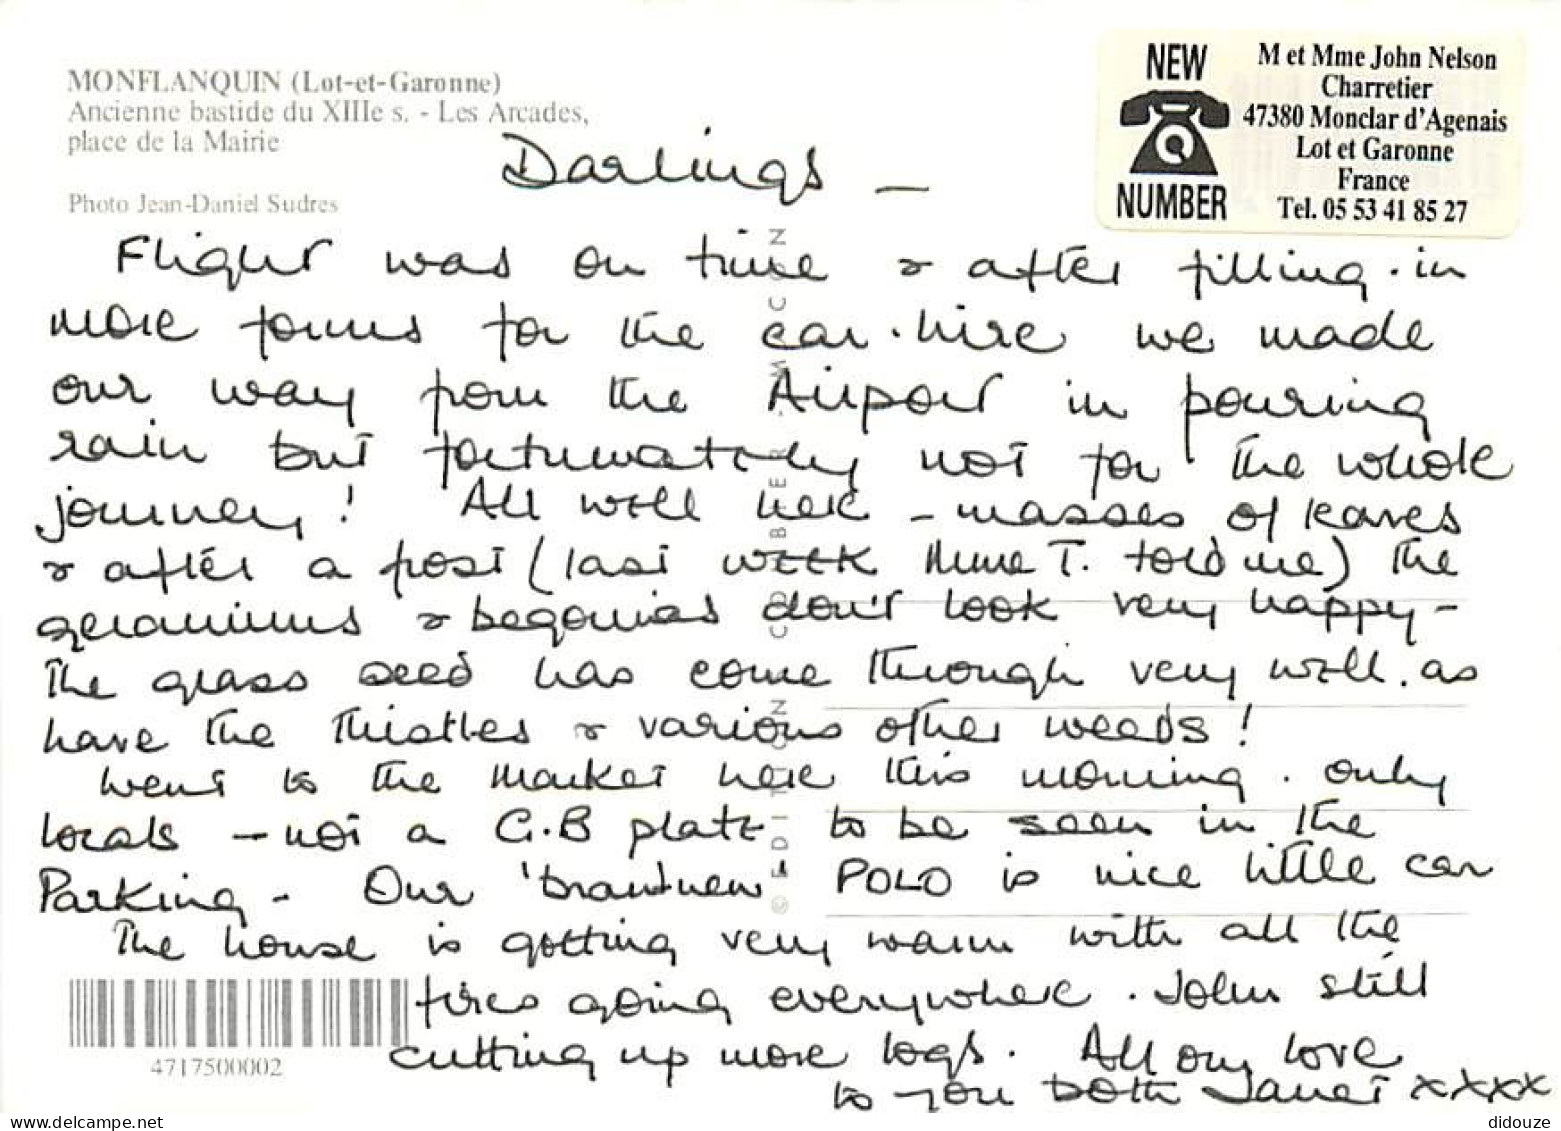 MONFLANQUIN (Lot-et-Garonne)
Ancienne bastide du XIIIe s. - Les Arcades,
place de la Mairie
Photo Jean-Daniel Sudres
NEW
NUMBER
M et Mme John Nelson
Charretier
47380 Monclar d'Agenais
Lot et Garonne
France
Tel. 05 53 41 85 27
Darlings —
Flight was on time & after filling-in
more forms for the car-hire we made
our way from the Airport in pouring
rain but fortunately not for the whole
journey! All well here - masses of leaves
& after a frost (last week Mme T. told me) the
geraniums & begonias don't look very happy -
The grass seed has come through very well. as
have the thistles & various other weeds!
Went to the market here this morning. only
locals - not a G.B plate to be seen in the
Parking - Our 'brand new' POLO is nice little car
The house is getting very warm with all the
fires going everywhere. John still
cutting up more logs. All our love
to you both Janet xxxx
4717500002
didouze